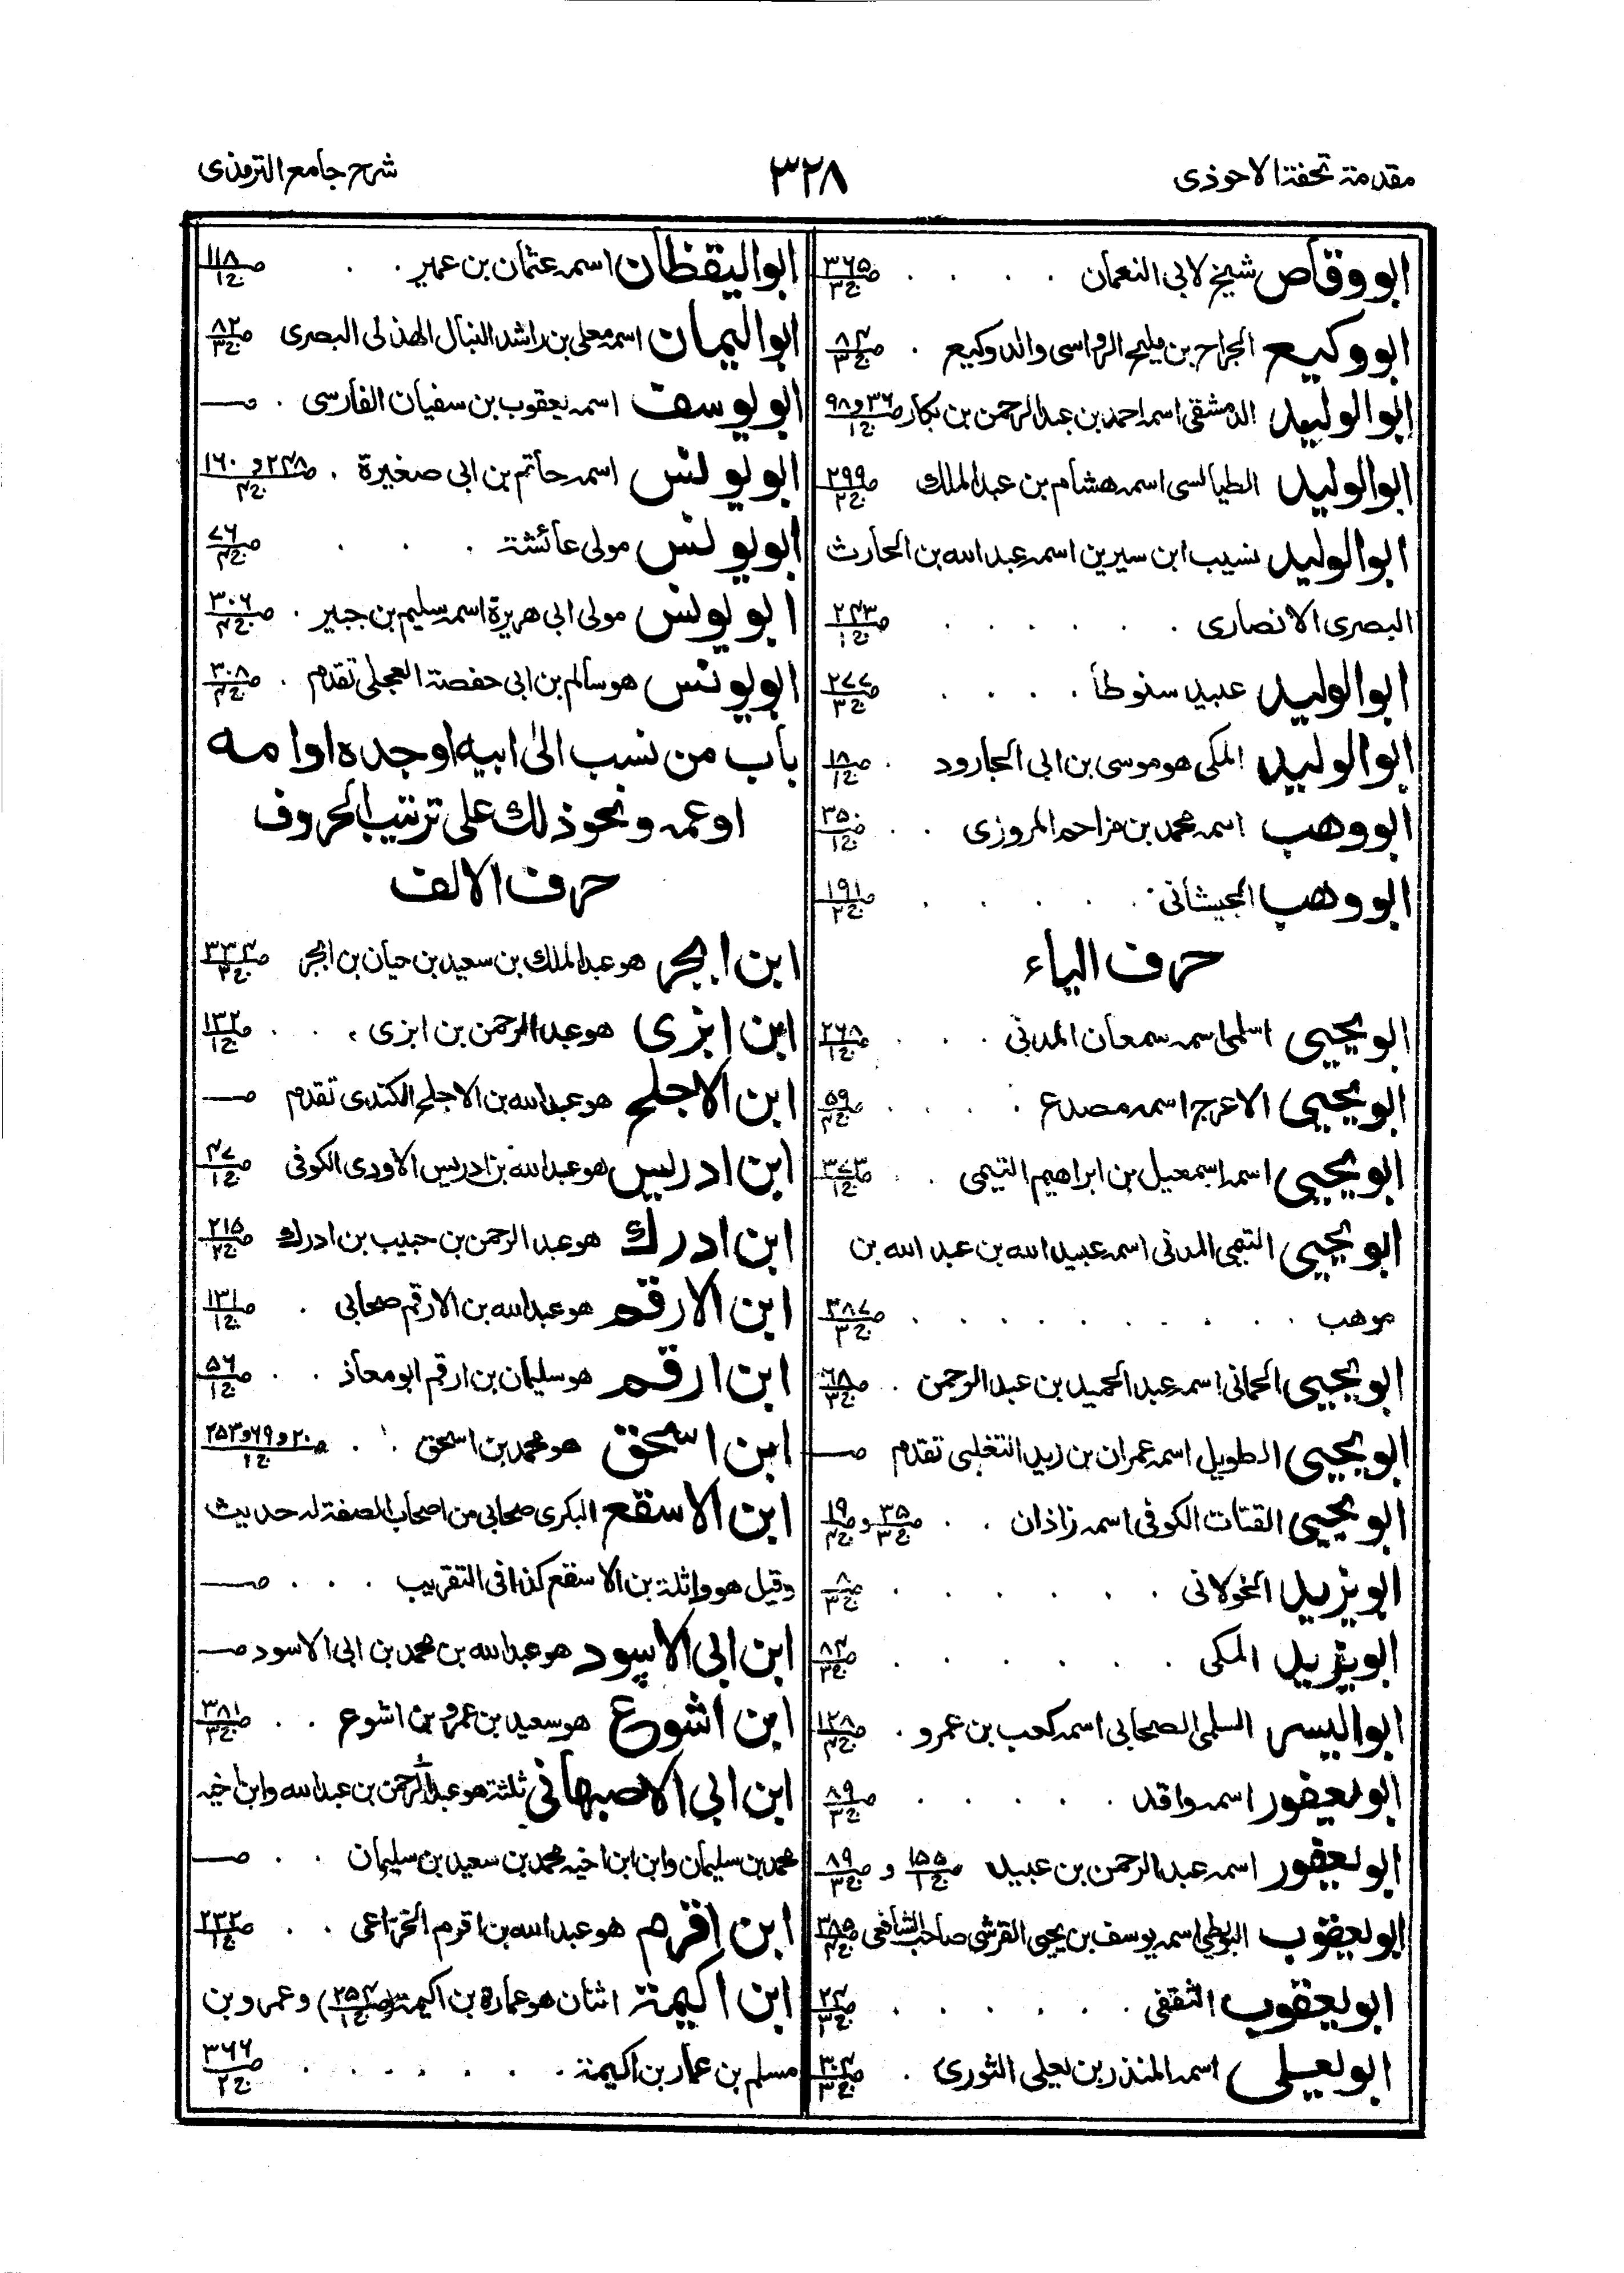 مقدمة تحفة الاحوذى
٣٢٨
شرح جامع الترمذى
ابو وقاص شيخ لابى النعمان . . . . ص٣٦٥ ج٣
ابو وكيع الجراح بن مليح الرواسى والد وكيع . ص٨٤ ج٣
ابو الوليد الدمشقى اسمه احمد بن عبد الرحمن بن بكار ص٣٦ و٩٨ ج١
ابو الوليد الطيالسى اسمه هشام بن عبد الملك ص٢٩٩ ج٢
ابو الوليد نسيب ابن سيرين اسمه عبد الله بن الحارث
البصرى الانصارى . . . . . . ص٢٤٣ ج١
ابو الوليد عبيد سنوطا . . . . ص٢٧٧ ج٣
ابو الوليد المكى هو موسى بن ابى الجارود . ص١٨ ج١
ابو وهب اسمه محمد بن مزاحم المروزى . . ص٣٥٠ ج١
ابو وهب الجيشانى . . . . . ص١٩١ ج٢
حرف الياء
ابو يحيى اسلمى اسمه سمعان المدنى . . . ص٢٦٨ ج١
ابو يحيى الاعرج اسمه مصدع . . . . ص٥٩ ج٤
ابو يحيى اسمه اسمعيل بن ابراهيم التيمى . . ص٣٧٣ ج١
ابو يحيى التيمى المدنى اسمه عبيد الله بن عبد الله بن
موهب . . . . . . . . . . ص٣٨٧ ج٣
ابو يحيى الحمانى اسمه عبد الحميد بن عبد الرحمن . ص٦٨ ج٣
ابو يحيى الطويل اسمه عمران بن زيد التغلبى تقدم ص
ابو يحيى القتات الكوفى اسمه زاذان . . ص٣٥ ج٣ و ص١٩ ج٤
ابو يزيد الخولانى . . . . . . ص٨ ج٣
ابو يزيد المكى . . . . . . ص٨٤ ج٣
ابو اليسر السلمى الصحابى اسمه كعب بن عمرو . ص١٢٨ ج٤
ابو يعفور اسمه واقد . . . . . ص٨٩ ج٣
ابو يعفور اسمه عبد الرحمن بن عبيد ص١٥٥ ج١ و ص٨٩ ج٣
ابو يعقوب البويطى اسمه يوسف بن يحيى القرشى صاحب الشافعى ص٣٨٥ ج٤
ابو يعقوب الثقفى . . . . . . ص٢٤ ج٣
ابو يعلى اسمه المنذر بن يعلى الثورى . ص٣٠٤ ج٣
ابو اليقظان اسمه عثمان بن عمير . . ص١١٨ ج١
ابو اليمان اسمه معلى بن راشد النبال الهذلى البصرى ص٨٢ ج٣
ابو يوسف اسمه يعقوب بن سفيان الفارسى . ص
ابو يونس اسمه حاتم بن ابى صغيرة . ص٢٤٨ و ١٦٠ ج٤
ابو يونس مولى عائشة . . . ص٧٦ ج٤
ابو يونس مولى ابى هريرة اسمه سليم بن جبير . ص٣٠٦ ج٤
ابو يونس هو سالم بن ابى حفصة العجلى تقدم . ص٣٠٨ ج٤
باب من نسب الى ابيه او جده او امه
او عمه ونحو ذلك على ترتيب الحروف
حرف الالف
ابن ابجر هو عبد الملك بن سعيد بن حيان بن ابجر ص٣٣٤ ج٣
ابن ابزى هو عبد الرحمن بن ابزى . . . ص١٣٢ ج١
ابن الاجلح هو عبد الله بن الاجلح الكندى تقدم ص
ابن ادريس هو عبد الله بن ادريس الاودى الكوفى ص٤٧ ج١
ابن ادرك هو عبد الرحمن بن حبيب بن ادرك ص٢١٥ ج٢
ابن الارقم هو عبد الله بن الارقم صحابى . ص١٣١ ج١
ابن ارقم هو سليمان بن ارقم ابو معاذ . . ص٥٦ ج١
ابن اسحق هو محمد بن اسحق . . ص٢٠ و٦٩ و٢٥٣ ج١
ابن الاسقع البكرى صحابى من اصحاب الصفة له حديث
وقيل هو واثلة بن الاسقع كذا فى التقريب . . . ص
ابن ابى الاسود هو عبد الله بن محمد بن ابى الاسود ص
ابن اشوع هو سعيد بن عمرو بن اشوع . . ص٣٨١ ج٣
ابن ابى الاصبهانى ثلثة هو عبد الرحمن بن عبد الله وابن اخيه
محمد بن سليمان وابن ابن اخيه محمد بن سعيد بن سليمان . . ص
ابن اقرم هو عبد الله بن اقرم الخزاعى . . ص٢٣٢ ج١
ابن اكيمة اثنان هو عمارة بن اكيمة (ص٢٥٤ ج١) وعمرو بن
مسلم بن عمار بن اكيمة . . . . . . ص٣٦٦ ج٢